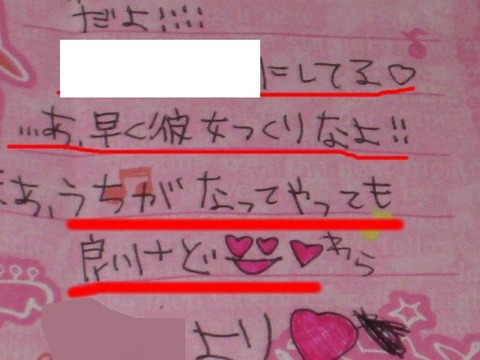 だよ!!!!
にしてる♡
…あ、早く彼女つくりなよ!!
まぁ、うちがなってやっても
良いけど わら
より